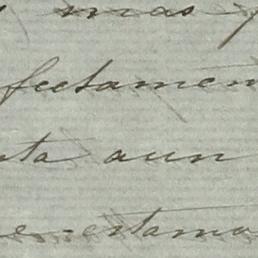 mas
fectamen
ta aun
e estamo